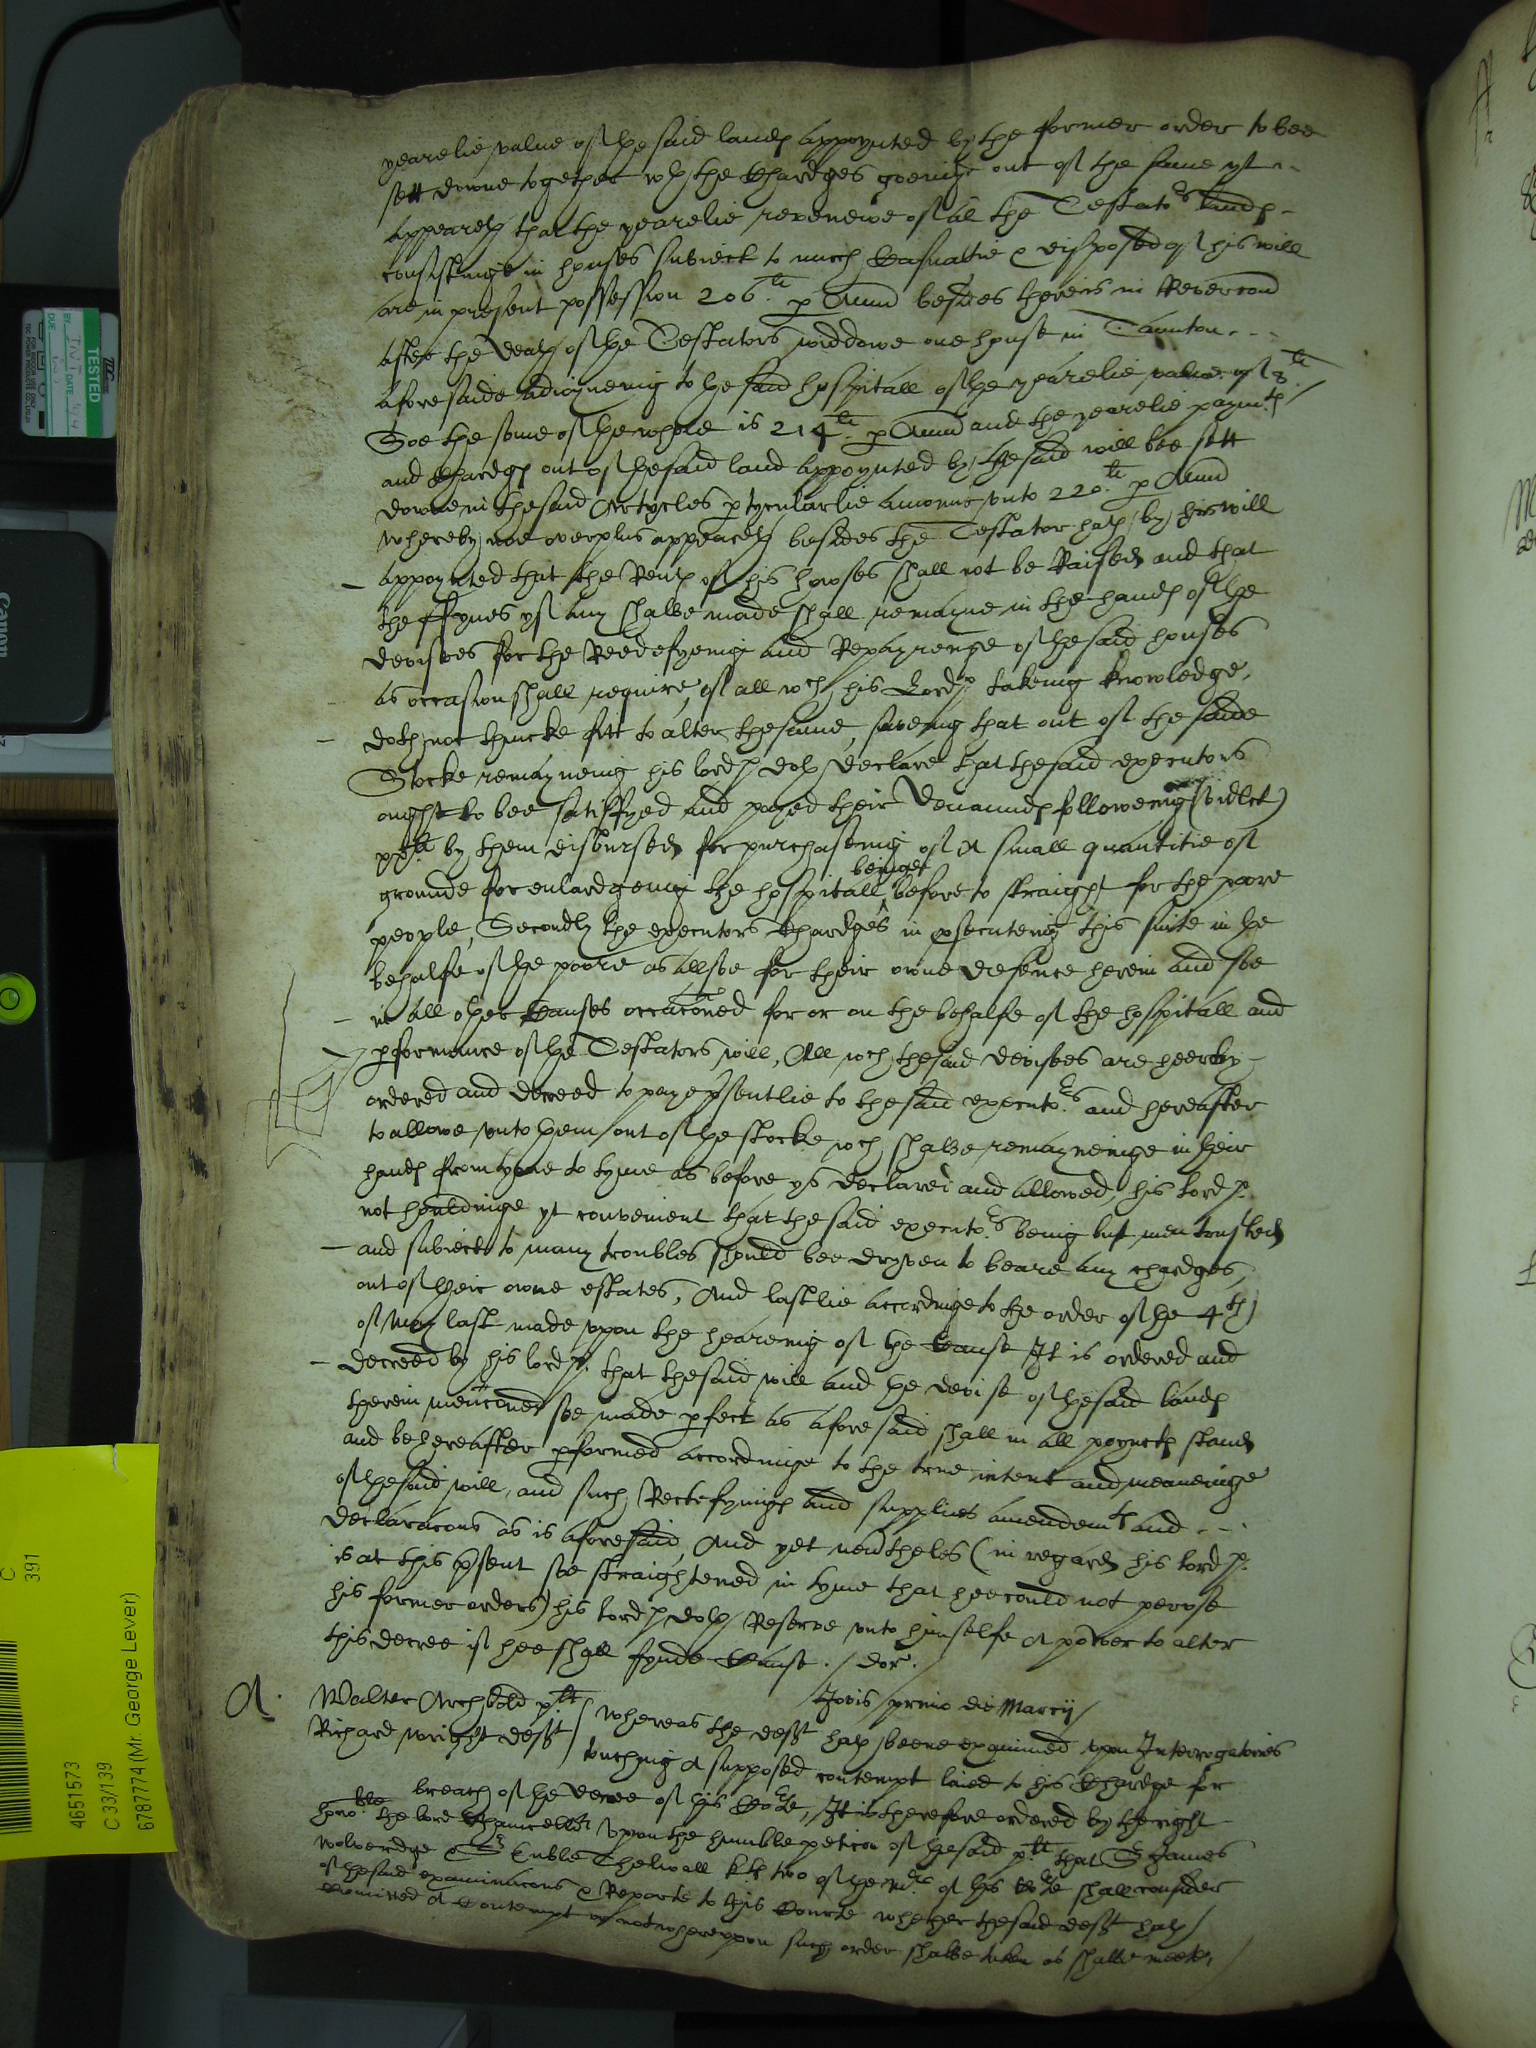 yearelie value of the said landes appoynted by the former order to bee
sett downe together wth the Chardges goeinge out of the same yt
appeareth that the yearelie revenewe of al the Testators landes
consistinge in houses subiect to much Casualtie & disposed of his will
are in present possession 206li p Annu besides there is in Revercon
after the death of the Testators widdowe one house in Taunton
aforesaide adioyneing to the said hospitall of the yearelie value of 8li
Soe the some of the whole is 214li p Annu and the yearelie paymts
and Chardges out of the said land appoynted by the said will bee sett
downe in the said Artycles ptycularlie amounte unto 220li p Annu
whereby noe overplus appeareth besides the Testator hath by his will
appoynted that the Rents of his howses shall not be Raised and that
the ffynes yf any shalbe made shall remayne in the handes of the
devisees for the Reedefyeing and Repayrenge of the said houses
as occasion shall require, of all wch his Lordp takeing knowledge,
doth not thincke fitt to alter the same, saveing that out of the saide
Stocke remayneing his lordp doth declare that the said executors
ought to bee satisfyed and payed their demaundes followeing (vidlct)
by them disbursed for purchaseing of A small quantitie of
grounde for enlardgeing the hospitall beinge before to straight for the poore
people, Secondly the executors Chardges in psecuteing this suite in the
behalfe of the poore as allsoe for their owne defence herein and soe
in all other Causes occaconed for or on the behalfe of the hospitall and
pformance of the Testators will, All wch the said devisees are heerby
ordered and decreed to paye psentlie to the said executors and hereafter
to allowe unto them out of the stocke wch shalbe remayneinge in their
handes from tyme to tyme as before ys declared and allowed, his lordp
not houldinge yt convenient that the said executors being but men trusted
and subiect to many troubles should bee dryven to beare any chardges,
out of their owne estates, And lastlie accordinge to the order of the 4th
of May last made upon the heareing of the Cause It is ordered and
decreed by his lordp that the said will and the devise of the said landes
therein menconed soe made pfect as aforesaid shall in all poyncts stand
and be hereafter pformed accordinge to the true intent and meaneinge
of the said will, and such Rectefyinges and supplies amendemts and
declaracons as is aforesaid, And yet nevtheles (in regard his lordp
is at this psent soe straightened in tyme that hee could not peruse
his former orders) his lordp doth Reserve unto himselfe A power to alter
this decree if hee shall fynde Cause./
Jovis primo die Marcij
A. Walter Archbold plt
Richard Wright deft
whereas the deft hath beene examined upon Interrogatories
touching A supposed contempt laied to his Chardge for
breach of the decree of this Corte, It is therefore ordered by the right
honoble the lord Chauncellor upon the humble peticon of the said plt that Sr James
Wolveridge & Sr Eubule Thelwall kts two of the mrs of this Corte shall consider
of the said examinacons & Reporte to this Courte whether the said deft hath
Comitted A Contempt or not whereupon such order shalbe taken as shalbe meete,
TESTED
BY INIT
DATE
DUE
Canon
C
391
4651573
C 33/139
6787774 (Mr. George Lever)